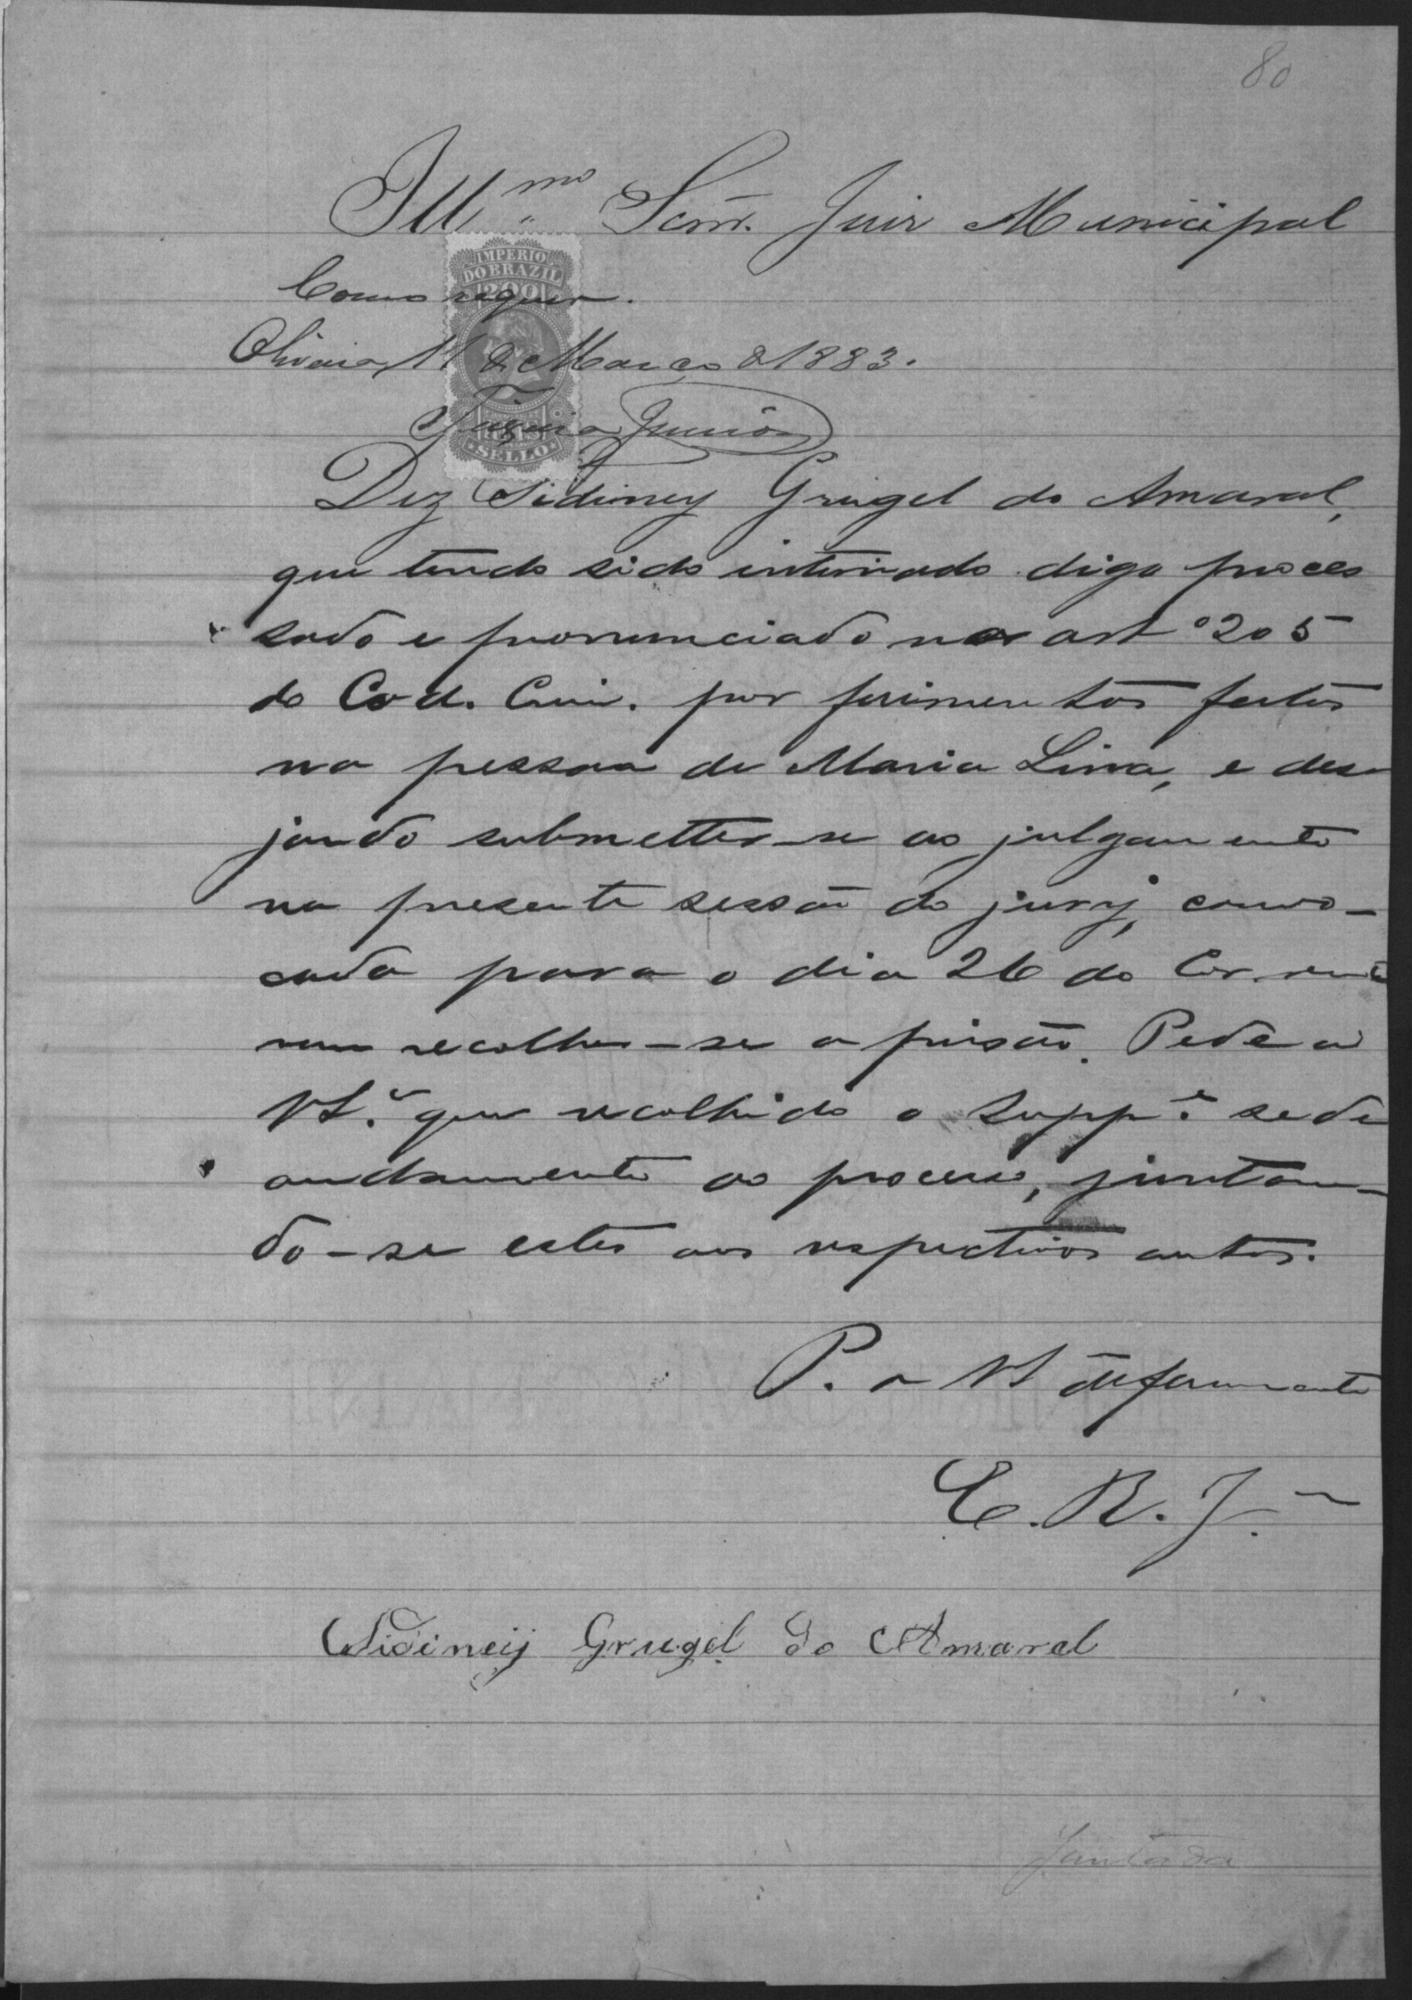 80
Illmo Senr. Juiz Municipal
IMPERIO
DO BRAZIL
200
REIS
SELLO
Como requer.
Oliveira, 11 de Março d 1883.
Junior
Diz Sidiney Grugel do Amaral,
que tendo sido interiado digo proces
sado e pronunciado no art º 205
do Cod. Crim. por ferimentos feitos
na pessoa de Maria Lina, e dese
jando submetter-se ao julgamento
na presente sessão do jury, convo-
cada para o dia 26 do Corrente
vem recolher-se a prisão. Pede a
VS.ª que recolhido o Suppe. se de
andamento ao processo, juntan-
do-se estes aos respectivos autos.
P. a VS deferimento
E. R. J.
Sidineij Grugel do Amaral
Juntada